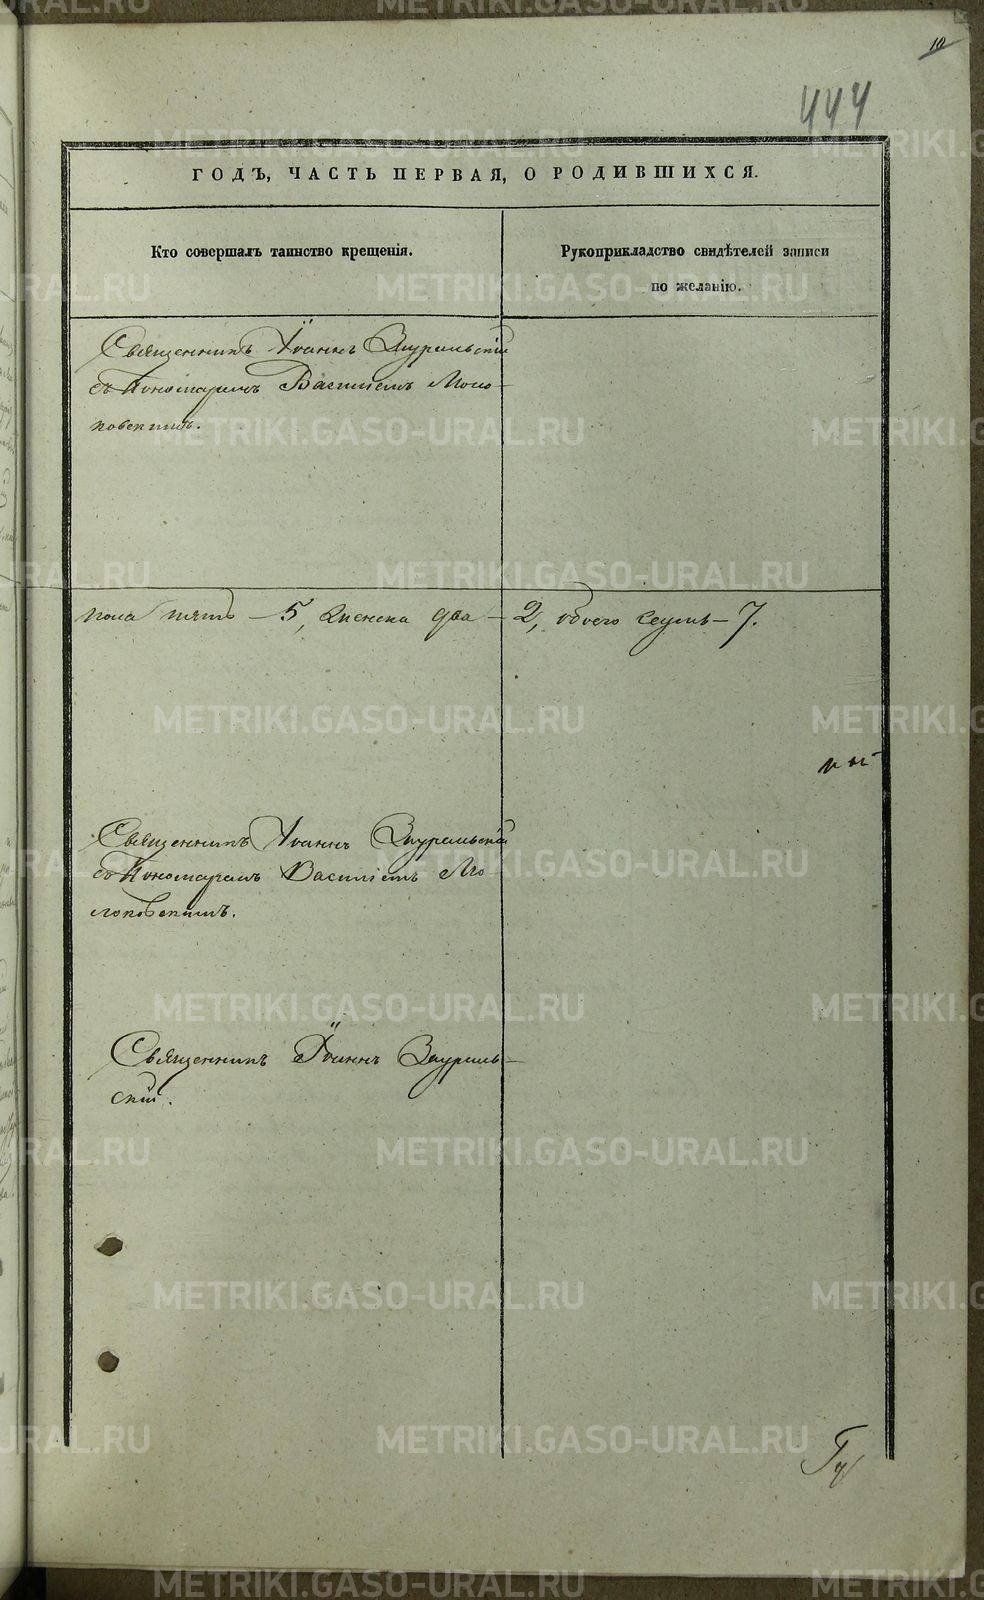 10
444
ГОДЪ, ЧАСТЬ ПЕРВАЯ, О РОДИВШИХСЯ.
Кто совершалъ таинство крещенія.
Рукоприкладство свидѣтелей записи
по желанію.
Священникъ Іоаннъ Зауральскій
съ Пономаремъ Василіемъ Моло-
ковскимъ.
пола пять - 5, женска два - 2, обоего седмь - 7.
Священникъ Іоаннъ Зауральскій
съ Пономаремъ Василіемъ Мо
локовскимъ.
Священникъ Іоаннъ Заураль-
скій.
METRIKI.GASO-URAL.RU